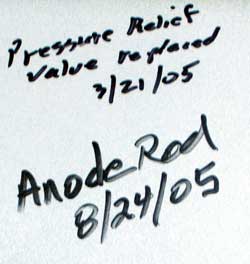 Pressure Relief
value replaced
3/21/05
Anode Rod
8/24/05